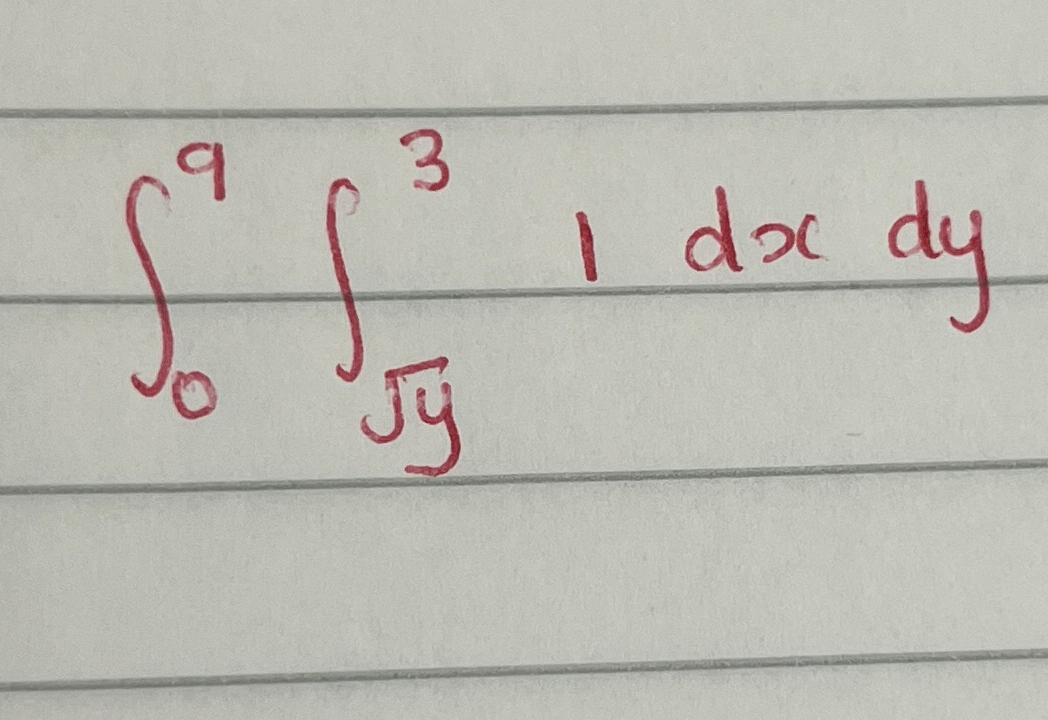 ∫₀⁹ ∫_√y³ 1 dx dy